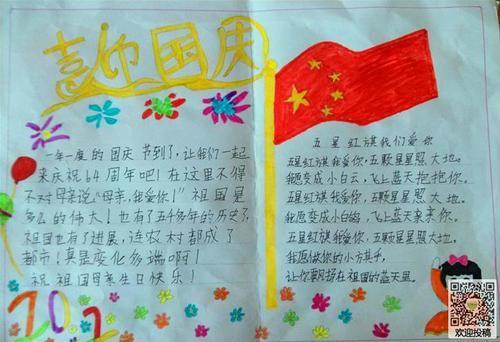 喜迎国庆
一年一度的国庆节到了,让我们一起
来庆祝64周年吧!在这里不得
不对母亲说:“母亲,我爱你!”祖国是
多么的伟大!也有了五千多年的历史了,
祖国也有了进展,连农村都成了
都市!真是变化多端啊!
祝祖国母亲生日快乐!
10.1
五星红旗我们爱你
五星红旗我爱你,五颗星星照大地。
我愿变成小白云,飞上蓝天抱抱你。
五星红旗我爱你,五颗星星照大地。
我愿变成小白鸽,飞上蓝天亲亲你。
五星红旗我爱你,五颗星星照大地。
我愿做你的小方旗手,
让你飘扬在祖国的蓝天里。
欢迎投稿